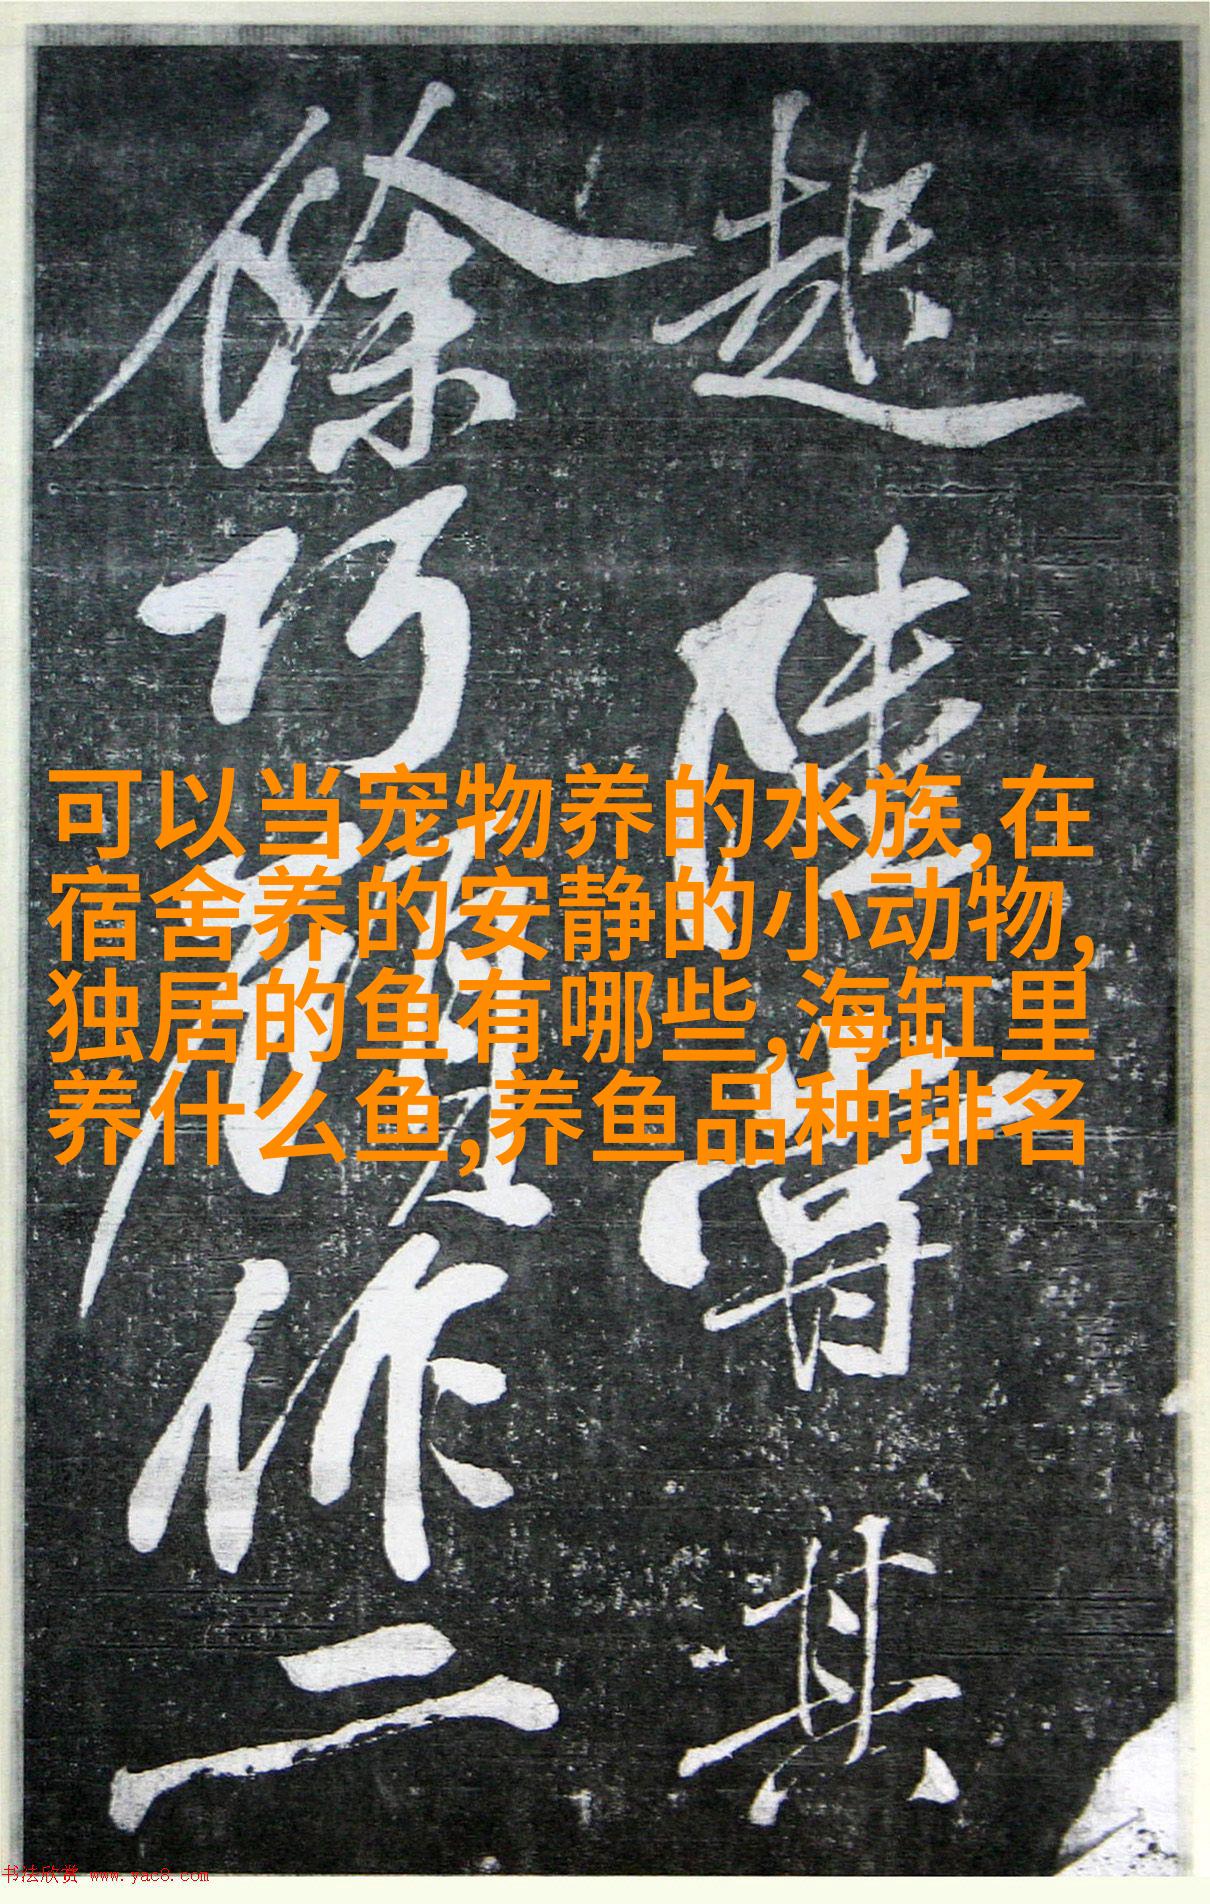 趁陸賈其
餘巧離作二
可以当宠物养的水族,在
宿舍养的安静的小动物,
独居的鱼有哪些,海缸里
养什么鱼,养鱼品种排名
书法欣赏 www.yac8.com